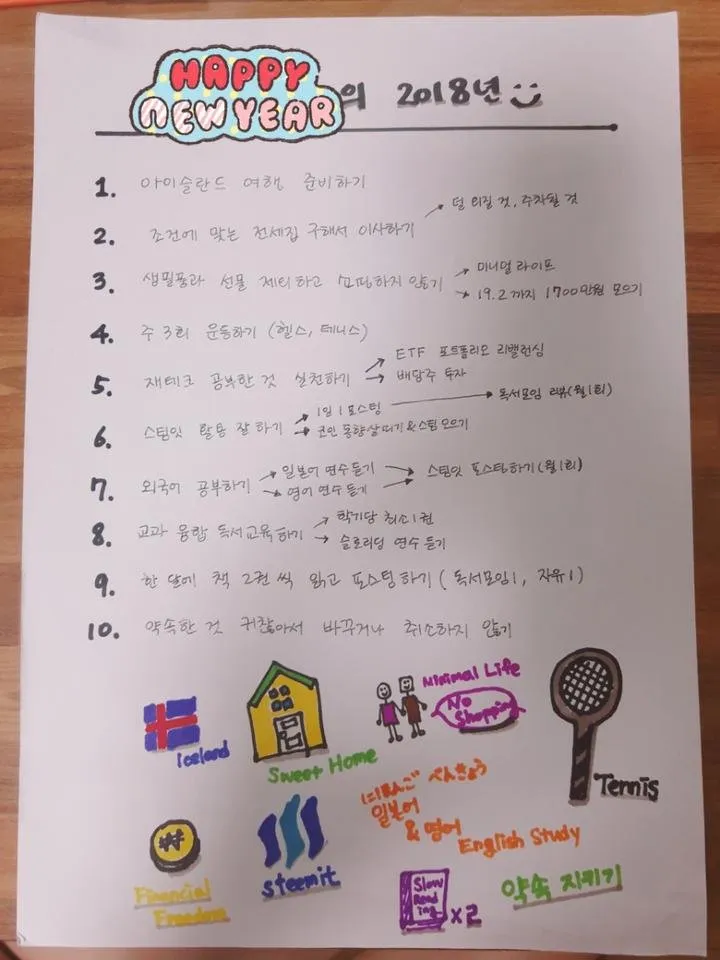 HAPPY NEW YEAR의 2018년
1. 아이슬란드 여행 준비하기
2. 조건에 맞는 전세집 구해서 이사하기 → 덜 외질 것, 주차될 것
3. 생필품과 선물 제외하고 쇼핑하지 않기 → 미니멀 라이프
→ 19.2까지 1700만원 모으기
4. 주 3회 운동하기 (헬스, 테니스)
5. 재테크 공부한 것 실천하기 → ETF 포트폴리오 리밸런싱
→ 배당주 투자
6. 스팀잇 활용 잘 하기 → 1일 1포스팅 → 독서모임 리뷰(월1회)
→ 코인 동향 살피기 & 스팀 모으기
7. 외국어 공부하기 → 일본어 연수 듣기 → 스팀잇 포스팅하기(월1회)
→ 영어 연수 듣기 →
8. 교과 융합 독서교육하기 → 학기당 최소 1권
→ 슬로리딩 연수 듣기
9. 한 달에 책 2권 씩 읽고 포스팅하기 (독서모임1, 자유1)
10. 약속한 것 귀찮아서 바꾸거나 취소하지 않기
Iceland
Sweet Home
Minimal Life
No
Shopping
Tennis
₩
Financial
Freedom
steemit
にほんご べんきょう
일본어
& 영어
English Study
Slow
Read
ing
x2
약속 지키기